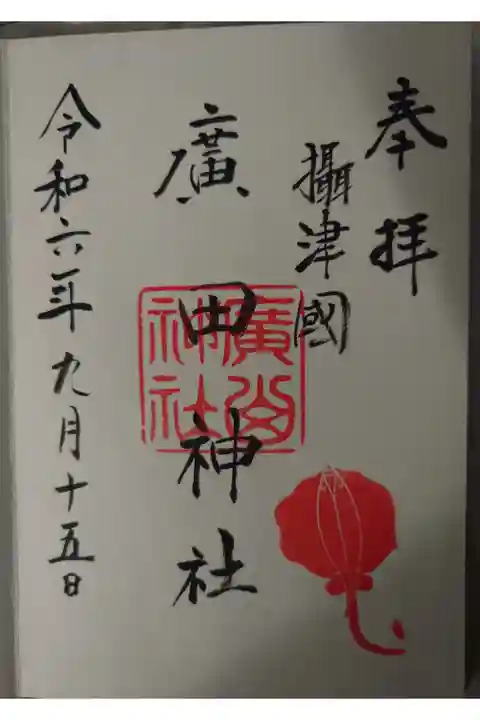 奉拝
攝津國
廣田神社
令和六年九月十五日